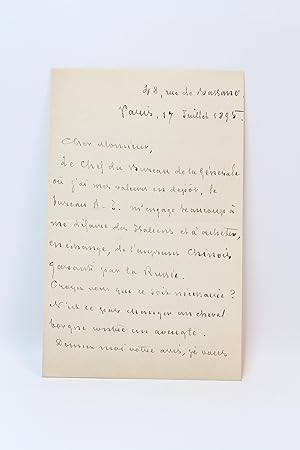 48, rue de Bassano
Paris, 17 Juillet 1895.
Cher Monsieur,
Le Chef du Bureau de la Générale
où j'ai mes valeurs en dépôt, le
bureau A-Z. m'engage beaucoup à
me défaire des Italiens et à acheter,
en échange, de l'emprunt Chinois
garanti par la Russie.
Croyez vous que ce soit nécessaire ?
N'est ce pas changer un cheval
borgne contre un aveugle.
Donnez moi votre avis, je vous